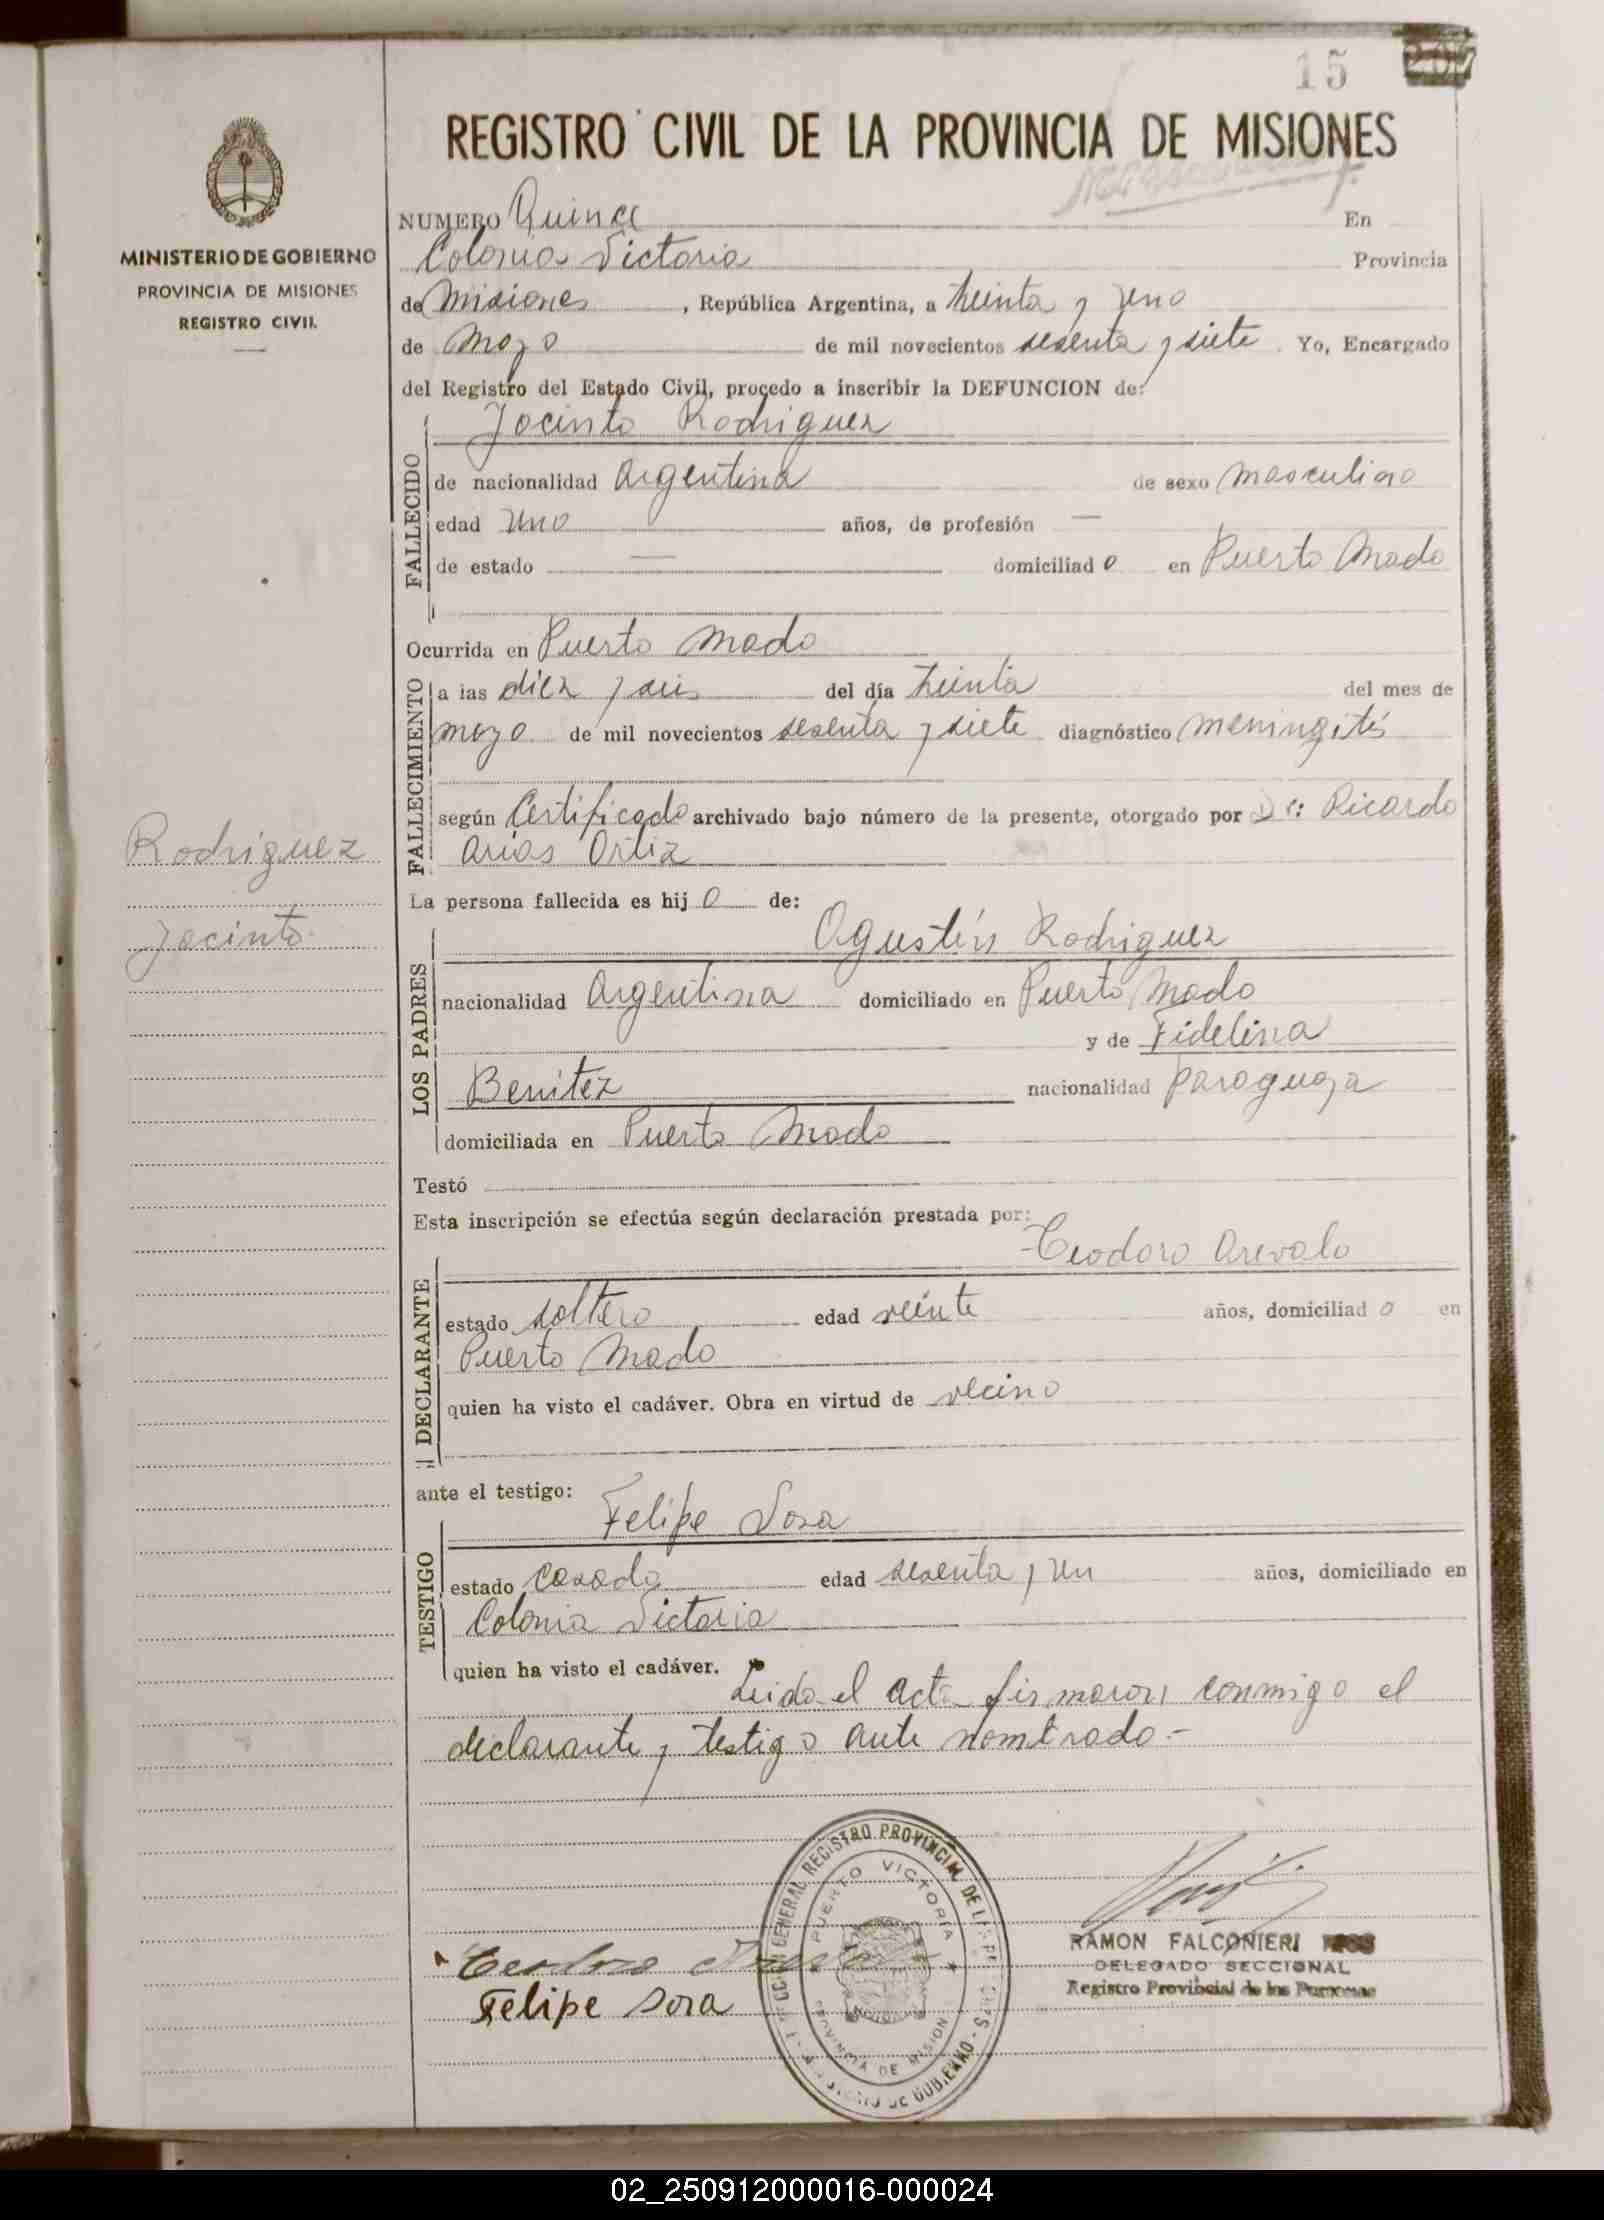 15
REGISTRO CIVIL DE LA PROVINCIA DE MISIONES
MINISTERIO DE GOBIERNO
PROVINCIA DE MISIONES
REGISTRO CIVIL
NUMERO Quince En
Colonia Victoria Provincia
de Misiones, República Argentina, a treinta y uno
de mayo de mil novecientos sesenta y siete. Yo, Encargado
del Registro del Estado Civil, procedo a inscribir la DEFUNCION de:
FALLECIDO
Jacinto Rodriguez
de nacionalidad Argentina de sexo masculino
edad uno años, de profesión —
de estado — domiciliado en Puerto Mado
Ocurrida en Puerto Mado
FALLECIMIENTO
a las diez y seis del día treinta del mes de
mayo de mil novecientos sesenta y siete diagnóstico meningitis
según Certificado archivado bajo número de la presente, otorgado por Dr: Ricardo
Arias Ortiz
Rodriguez
Jacinto
La persona fallecida es hijo de:
LOS PADRES
Agustín Rodriguez
nacionalidad Argentina domiciliado en Puerto Mado
y de Fidelina
Benitez nacionalidad paraguaya
domiciliada en Puerto Mado
Testó
Esta inscripción se efectúa según declaración prestada por:
DECLARANTE
Teodoro Arevalo
estado soltero edad veinte años, domiciliado en
Puerto Mado
quien ha visto el cadáver. Obra en virtud de vecino
ante el testigo:
TESTIGO
Felipe Sosa
estado casado edad sesenta y un años, domiciliado en
Colonia Victoria
quien ha visto el cadáver. Leida el acta firmaron conmigo el
declarante y testigo ante nombrado.-
Teodoro
Felipe Sosa
REGISTRO PROVINCIAL DE
PUERTO VICTORIA
PROVINCIA DE MISIONES
RAMON FALCONIERI
DELEGADO SECCIONAL
Registro Provincial de las Personas
02_250912000016-000024